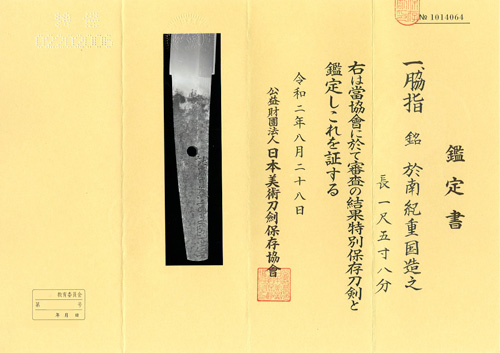 № 1014064
鑑定書
一、脇指 銘 於南紀重国造之
長一尺五寸八分
右は當協會に於て審査の結果特別保存刀剣と
鑑定しこれを証する
令和二年八月二十八日
公益財團法人日本美術刀劍保存協會
教育委員会
第 号
年 月 日